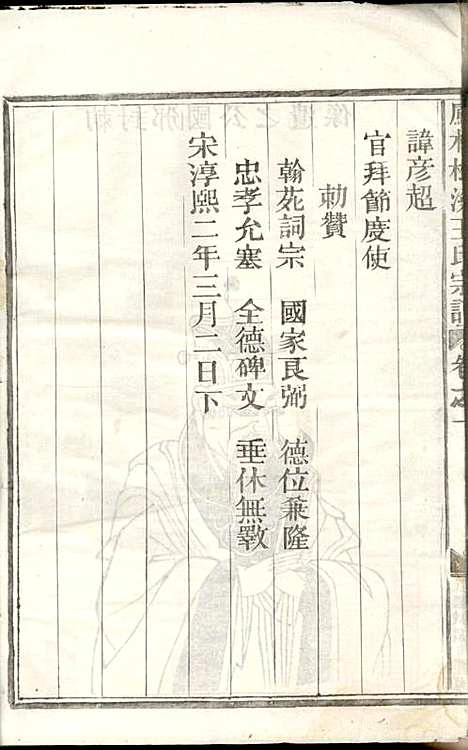 王氏宗譜
諱彦超
官拜節度使
勅贊
翰苑詞宗 國家良弼 德位乗隆
忠孝允塞 全德碑文 垂休無斁
宋淳熙二年三月二日下